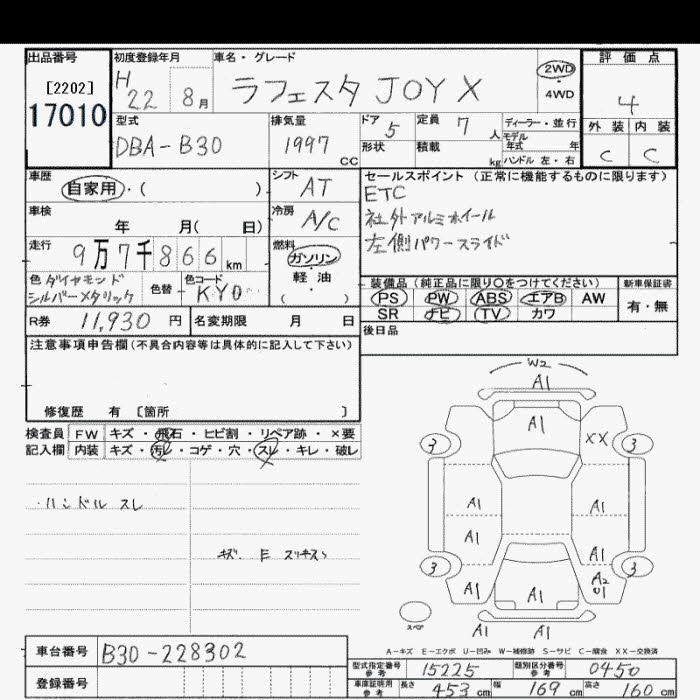 出品番号 初度登録年月 車名・グレード 評価点
[2202] H 22 8月 ラフェスタ JOY X 2WD ・ 4WD 4
17010
型式 排気量 ドア 5 定員 7 人 ディーラー・並行 外装 内装
DBA-B30 1997 CC 形状 積載 kg モデル年式 年 C C
ハンドル 左・右
車歴 シフト AT セールスポイント(正常に機能するものに限ります)
自家用・( ) ETC
車検 冷房 A/C 社外アルミホイール
年 月( 日) 左側パワースライド
走行 燃料
9万7千866km ガソリン・軽・油 ( )
色 ダイヤモンドシルバーメタリック 色替 色コード KY0 装備品(純正品に限り○をつけてください) 新車保証書
PS PW ABS エアB AW 有・無
R券 11,930 円 名変期限 月 日 SR ナビ TV カワ
注意事項申告欄(不具合内容等は具体的に記入して下さい) 後日品
修復歴 有 [箇所 ]
検査員 FW キズ・飛石・ヒビ割・リペア跡・×要
記入欄 内装 キズ・汚レ・コゲ・穴・スレ・キレ・破レ
・ハンドル スレ
W2
A1
A1 XX
3 3
A1 A1
A1 A1
3 3
A1 A1 A2
U1
スペア A1 A1
A-キズ E-エクボ U-凹み W-補修跡 S-サビ C-腐食 XX-交換済
車台番号 B30-228302
型式指定番号 参考 15225 類別区分番号 参考 0450
登録番号
車庫証明用 参考 長さ 453 cm 幅 169 cm 高さ 160 cm